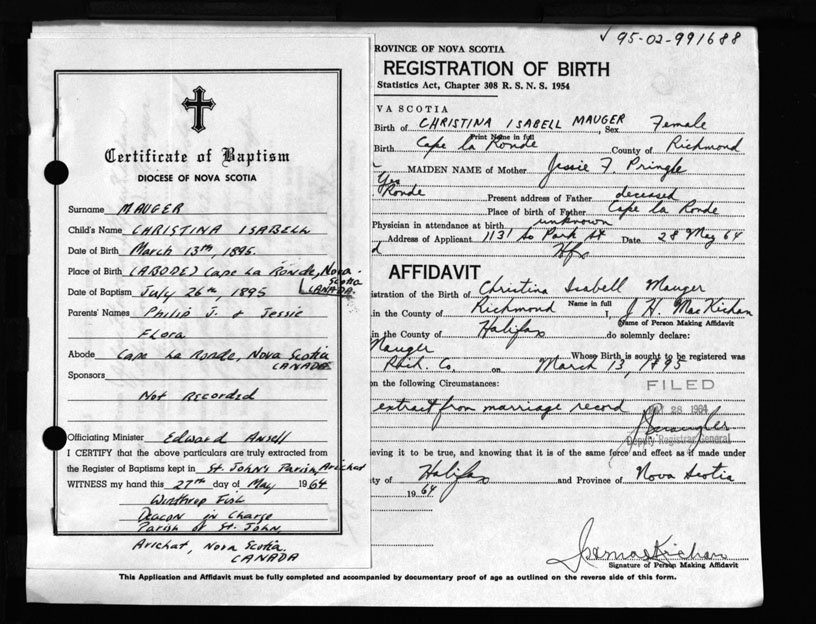 √ 95-02-991688
Certificate of Baptism
DIOCESE OF NOVA SCOTIA
Surname MAUGER
Child's Name CHRISTINA ISABELL
Date of Birth March 13th, 1895.
Place of Birth (ABODE) Cape La Ronde, Nova Scotia CANADA.
Date of Baptism July 26th, 1895
Parents' Names Philip J. & Jessie
Flora
Abode Cape La Ronde, Nova Scotia
CANADA
Sponsors
Not Recorded
Officiating Minister Edward Ansell
I CERTIFY that the above particulars are truly extracted from
the Register of Baptisms kept in St. Johns Parish, Arichat
WITNESS my hand this 27th day of May 1964
Winthrop Fish
Deacon in Charge
Parish of St. John
Arichat, Nova Scotia.
CANADA
ROVINCE OF NOVA SCOTIA
REGISTRATION OF BIRTH
Statistics Act, Chapter 308 R. S. N. S. 1954
VA SCOTIA
Birth of CHRISTINA ISABELL MAUGER, Sex Female
Print Name in full
Birth Cape la Ronde County of Richmond
MAIDEN NAME of Mother Jessie F. Pringle
Yes
Ronde Present address of Father deceased
Place of birth of Father Cape la Ronde
Physician in attendance at birth unknown
Address of Applicant 1131 So Park St Date 28 May 64
d Hfx
AFFIDAVIT
istration of the Birth of Christina Isabell Mauger
Name in full
in the County of Richmond I, J H. MacKichan
Name of Person Making Affidavit
in the County of Halifax do solemnly declare:
Mauger Whose Birth is sought to be registered was
Rich. Co. on March 13, 1895
on the following Circumstances:
FILED
extract from marriage record
28 1964
Deputy Registrar General
ieving it to be true, and knowing that it is of the same force and effect as if made under
ty of Halifax and Province of Nova Scotia
1964
Signature of Person Making Affidavit
This Application and Affidavit must be fully completed and accompanied by documentary proof of age as outlined on the reverse side of this form.